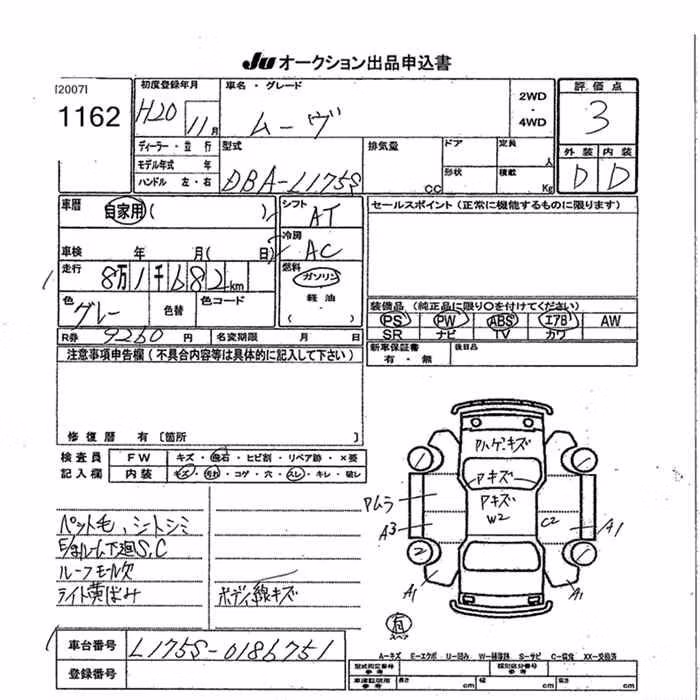 Ju オークション出品申込書
[2007]
1162
初度登録年月
H20 11月
車名・グレード
ムーヴ
2WD
・
4WD
評価点
3
外装 内装
D D
ディーラー・並行
モデル年式 年
ハンドル 左・右
型式
DBA-L175S
排気量
CC
ドア
定員
人
形状
積載
Kg
車歴
自家用(
)
シフト
AT
セールスポイント(正常に機能するものに限ります)
車検 年 月( 日)
冷房
AC
走行
8万1千682km
燃料
ガソリン
軽油
色
グレー
色替
色コード
装備品(純正品に限り○を付けてください)
PS PW ABS エアB AW
SR ナビ TV カワ
R券 9260 円
名変期限 月 日
新車保証書
有・無
後日品
注意事項申告欄(不具合内容等は具体的に記入して下さい)
修復歴 有〔箇所
〕
検査員
記入欄
FW
キズ・飛石・ヒビ割・リペア跡・×要
内装
キズ・汚れ・コゲ・穴・スレ・キレ・破レ
ペット毛、シトシミ
E/gルーム下廻S,C
ルーフモール欠
ライト黄ばみ
ボディ線キズ
Aハゲ・キズ
Aキズ
Aキズ
W2
Aムラ
A3
C2
A1
1
1
2
1
A1
A1
有
スペア
車台番号
L175S-0186751
登録番号
A―キズ E―エクボ U―凹み W―補修跡 S―サビ C―腐蝕 XX―交換済
型式指定番号
参考
類別区分番号
参考
車庫証明用
参考
長さ
cm
幅
cm
高さ
cm